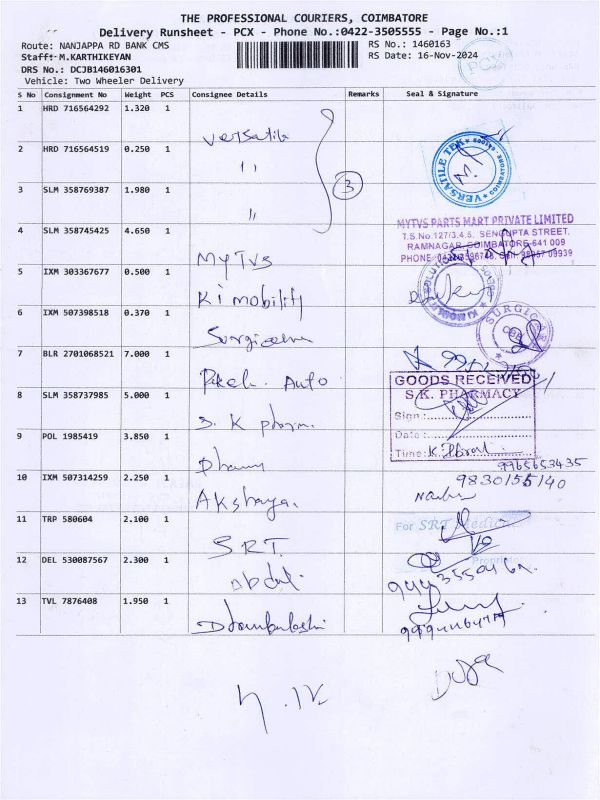 THE PROFESSIONAL COURIERS, COIMBATORE
Delivery Runsheet - PCX - Phone No.:0422-3505555 - Page No.:1
Route: NANJAPPA RD BANK CMS
RS No.: 1460163
Staff:- M.KARTHIKEYAN
RS Date: 16-Nov-2024
DRS No.: DCJB146016301
Vehicle: Two Wheeler Delivery
S No Consignment No Weight PCS Consignee Details Remarks Seal & Signature
1 HRD 716564292 1.320 1 Versatile
2 HRD 716564519 0.250 1 ,,
3 SLM 358769387 1.980 1 ,,
3
VERSATILE TEK
4 SLM 358745425 4.650 1 MyTvs
MYTVS PARTS MART PRIVATE LIMITED
T.S.No.127/3,4,5, SENGUPTA STREET,
RAMNAGAR, COIMBATORE-641 009
5 IXM 303367677 0.500 1 Ki mobility
6 IXM 507398518 0.370 1
7 BLR 2701068521 7.000 1 Auto
8 SLM 358737985 5.000 1 S. K pharm.
GOODS RECEIVED
S.K. PHARMACY
Sign:
Date:
Time:
9 POL 1985419 3.850 1
9965653435
10 IXM 507314259 2.250 1 Akshaya.
9830155140
11 TRP 580604 2.100 1 SRT.
For SRT Medic
Proprietor
12 DEL 530087567 2.300 1 Abdul.
13 TVL 7876408 1.950 1